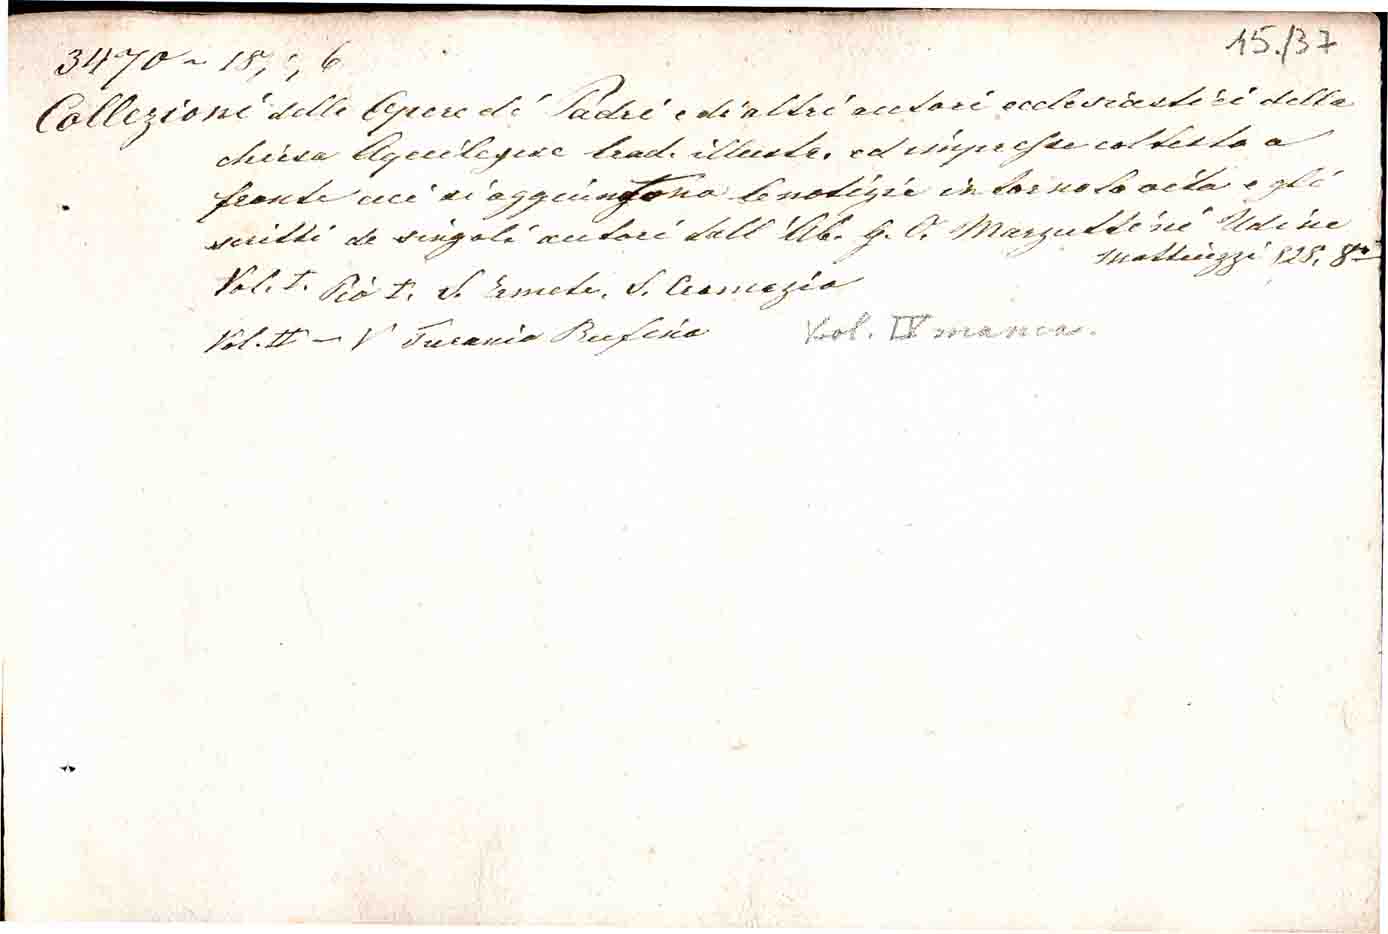 15./37
3470 ~ 15, 1, 6
Collezioni delle Opere di Padri e di altri autori ecclesiastici della
chiesa Aquilegese trad. illustr. ed impresse col testo a
fronte cui si aggiungono le notizie intorno la vita e gli
scritti de singoli autori dall' Ab. G. P. Marzuttini Udine
Mattiuzzi 828, 8º
Vol. I. Pio I. S. Ermete, S. Cromazio
Vol. II — V Turanio Rufino Vol. IV manca.